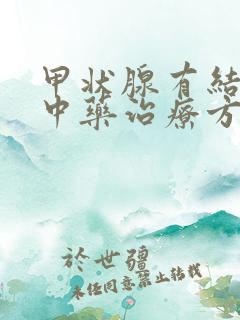 甲状腺有结
中药治疗方
於世疆
未经同意禁止转载